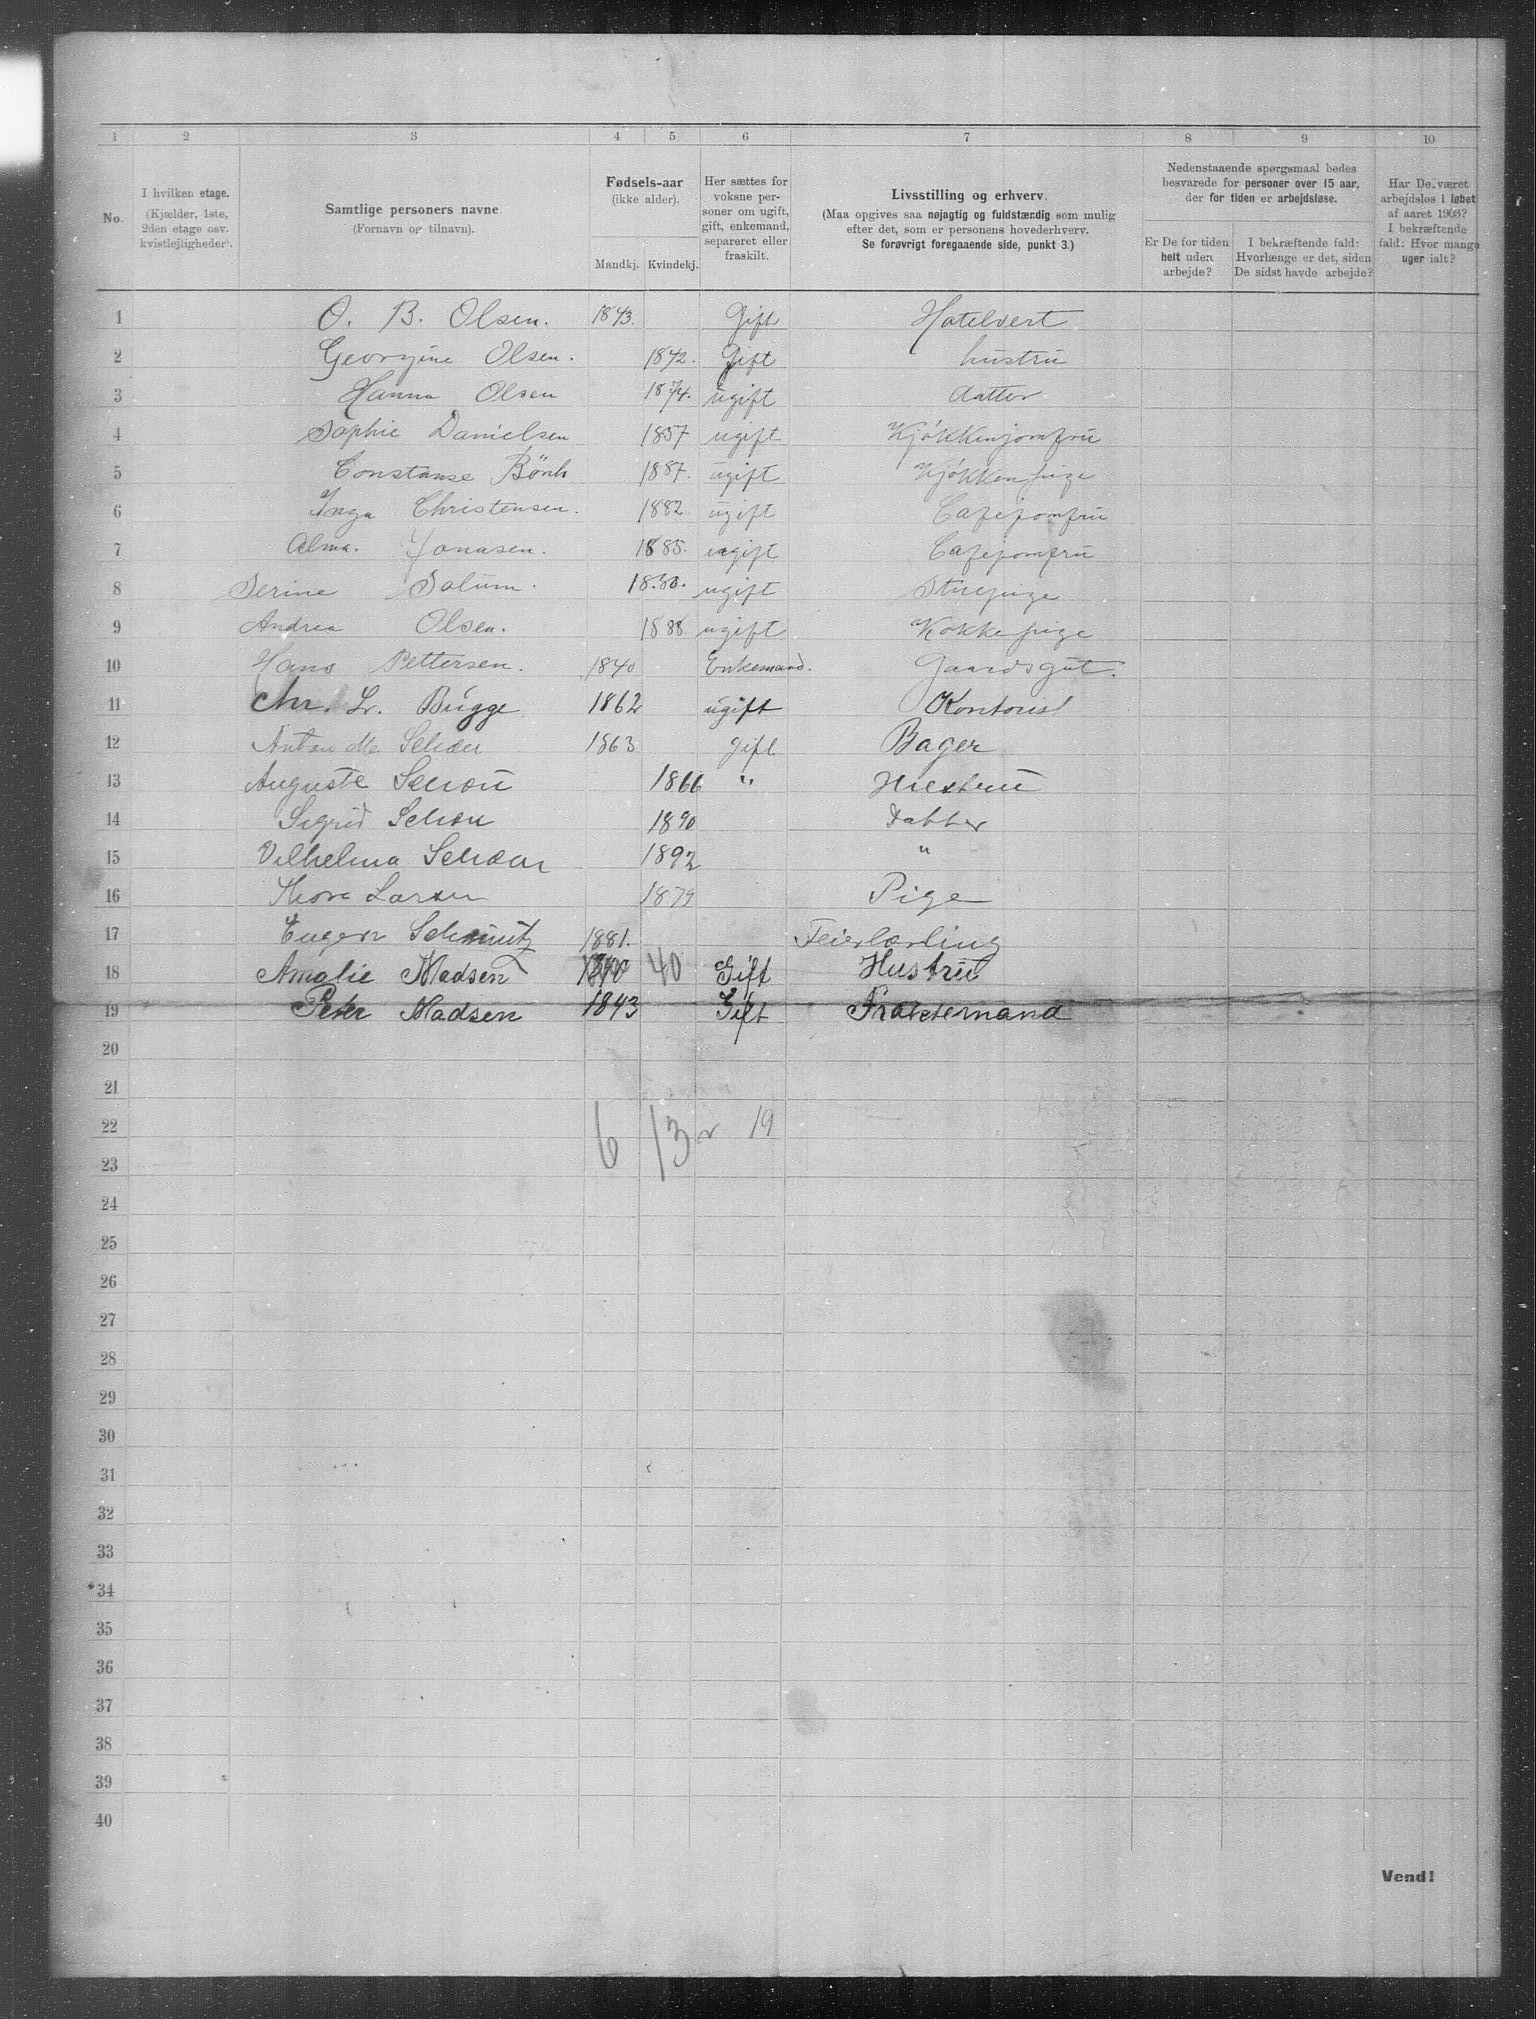 1 2 3 4 5 6 7 8 9 10
No.
I hvilken etage.
(Kjælder, 1ste,
2den etage osv.
kvistlejligheder).
Samtlige personers navne
(Fornavn og tilnavn).
Fødsels-aar
(ikke alder).
Mandkj. Kvindekj.
Her sættes for
voksne per-
soner om ugift,
gift, enkemand,
separeret eller
fraskilt.
Livsstilling og erhverv.
(Maa opgives saa nøjagtig og fuldstændig som mulig
efter det, som er personens hovederhverv.
Se forøvrigt foregaaende side, punkt 3.)
Nedenstaaende spørgsmaal bedes
besvarede for personer over 15 aar,
der for tiden er arbejdsløse.
Er De for tiden
helt uden
arbejde?
I bekræftende fald:
Hvorlænge er det, siden
De sidst havde arbejde?
Har De været
arbejdsløs i løbet
af aaret 1903?
I bekræftende
fald: Hvor mange
uger ialt?
1 O. B. Olsen. 1843. Gift Hotelvert
2 Georgine Olsen. 1842. Gift hustru
3 Hanna Olsen 1874. ugift datter
4 Sophie Danielsen 1857 ugift Kjøkkenjomfru
5 Constanse 1887. ugift Kjøkkenpige
6 Inga Christensen. 1882. ugift Cafejomfru
7 Alma. Jonasen. 1885. ugift Cafejomfru
8 Serine Solum. ugift Stuepige
9 Andrea Olsen. 1888 ugift Kokkepige
10 Hans Pettersen. 1840 Enkemand. Gaardsgut.
11 Chr. L. Bugge 1862 ugift Kontorist
12 Anton 1863 gift Bager
13 Auguste Schou 1866 " Huestru
14 Sigrid Schou 1890 Datter
15 Vilhelma 1892 "
16 Thora Larsen 1879 Pige
17 Eugen Schmutz 1881. Feierlærling
18 Amalie Madsen 40 Gift Hustru
19 Peter Madsen 1843 Gift
20
21
22 6 13 19
23
24
25
26
27
28
29
30
31
32
33
34
35
36
37
38
39
40
Vend!